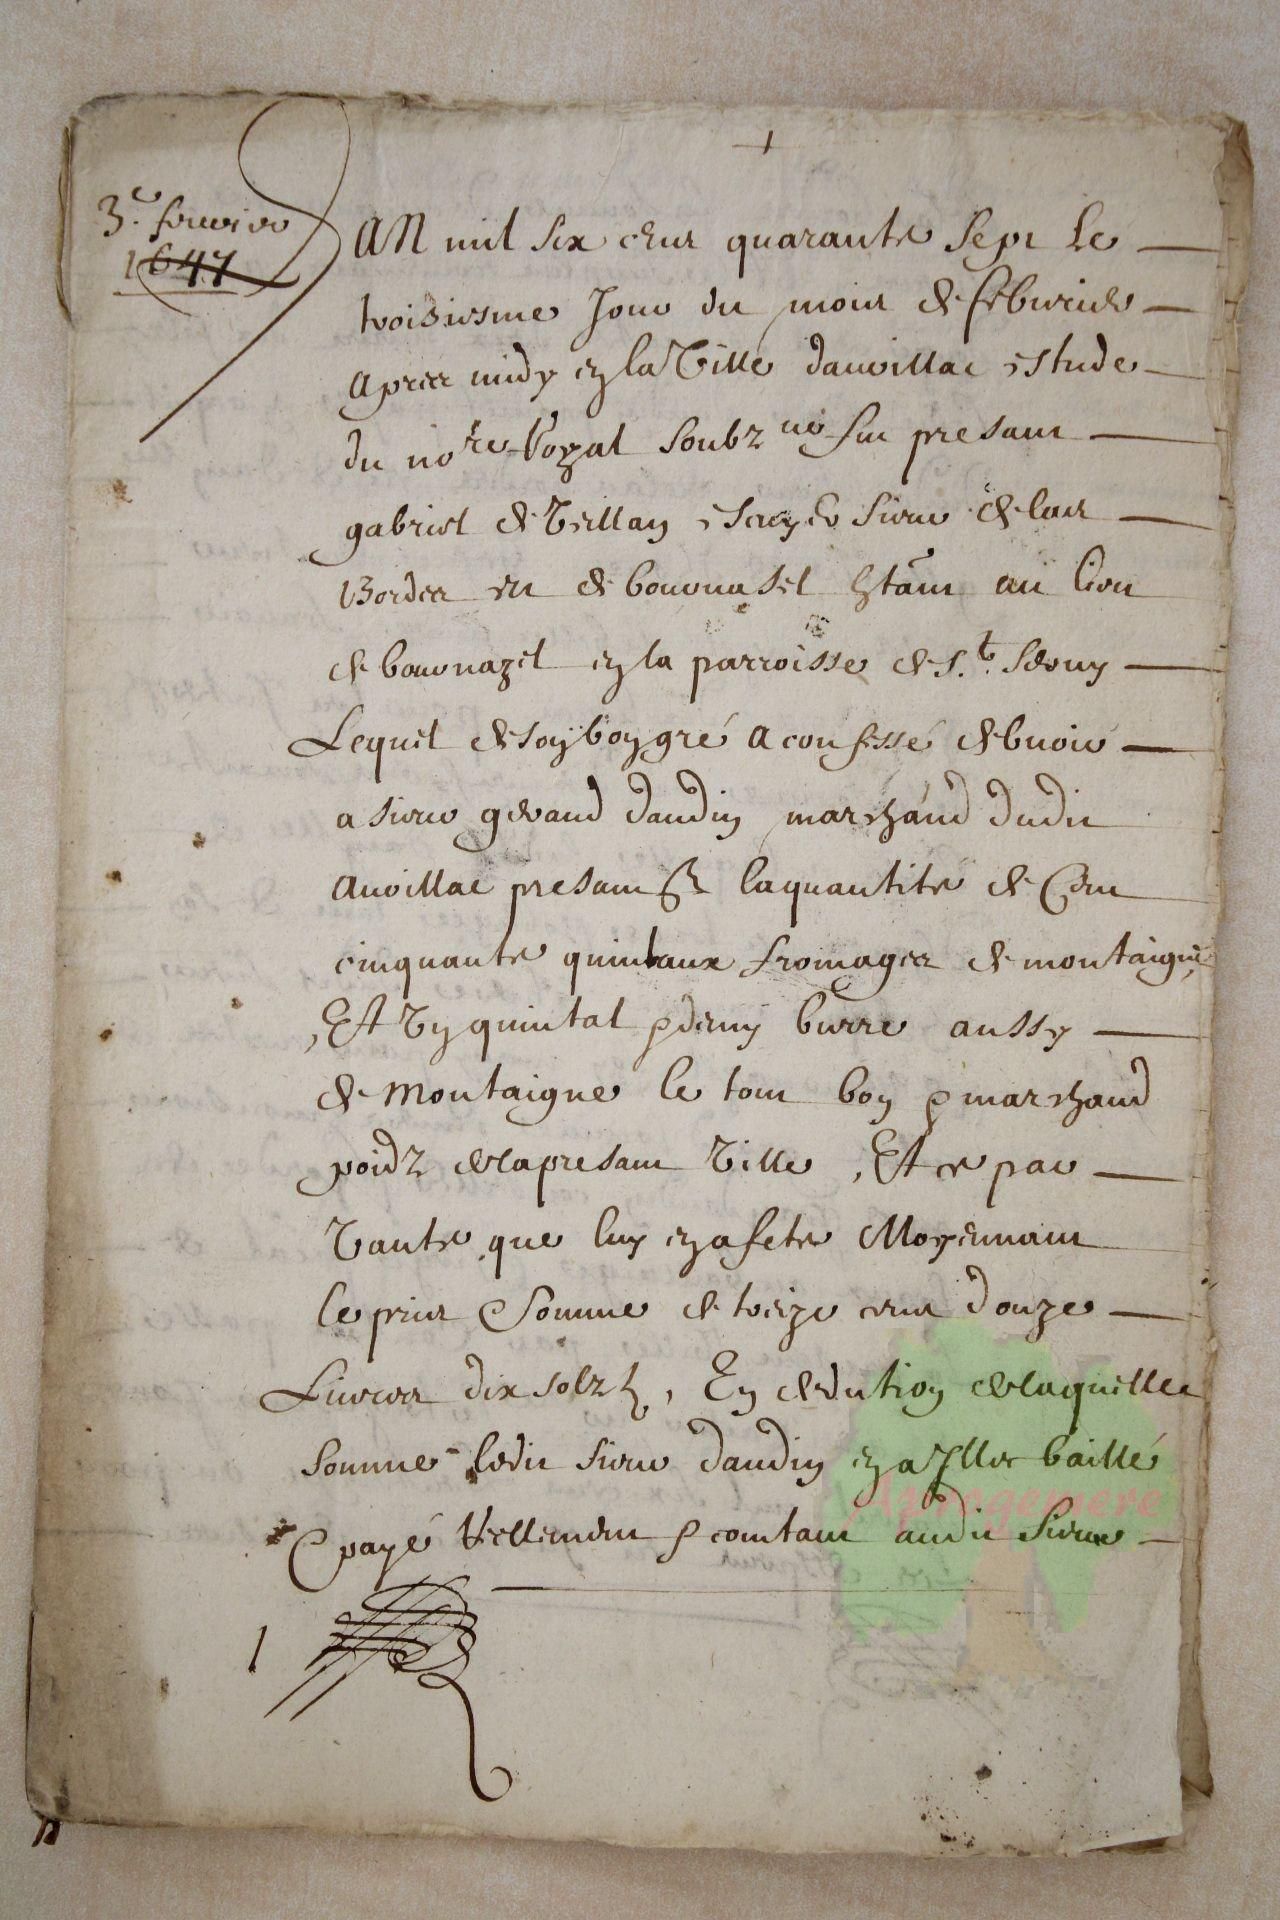 3.e feurier
1647
AN mil six cens quarante sept Le
troisiesme Jour du mois de feburier
apres midy en la Ville dauoillac estude
du no.re Royal soubz.ne fut presant
gabriel de Veillan escuyer sieur de las
Bordes et de bouonasel htant au lieu
de bouonazel en la parroisse de S.t Seuuy
Lequel de son bon gré a confessé debuoir
a sieur geraud daudin marchand dudit
auoillac presant la quantité de Cent
cinquante quintaux fromages de montaigne
Et Vn quintal & demy burre aussy
de montaigne le tout bon & marchand
poidz de la presant Ville, Et ce par
Vante que luy en a fete Moyennant
le prix & somme de treize cens douze
Liures dix solz, En dedution de laquelle
somme ledit sieur daudin en a Illec baillé
& payé reellement & comtant audit sieur
1
Auprogemere